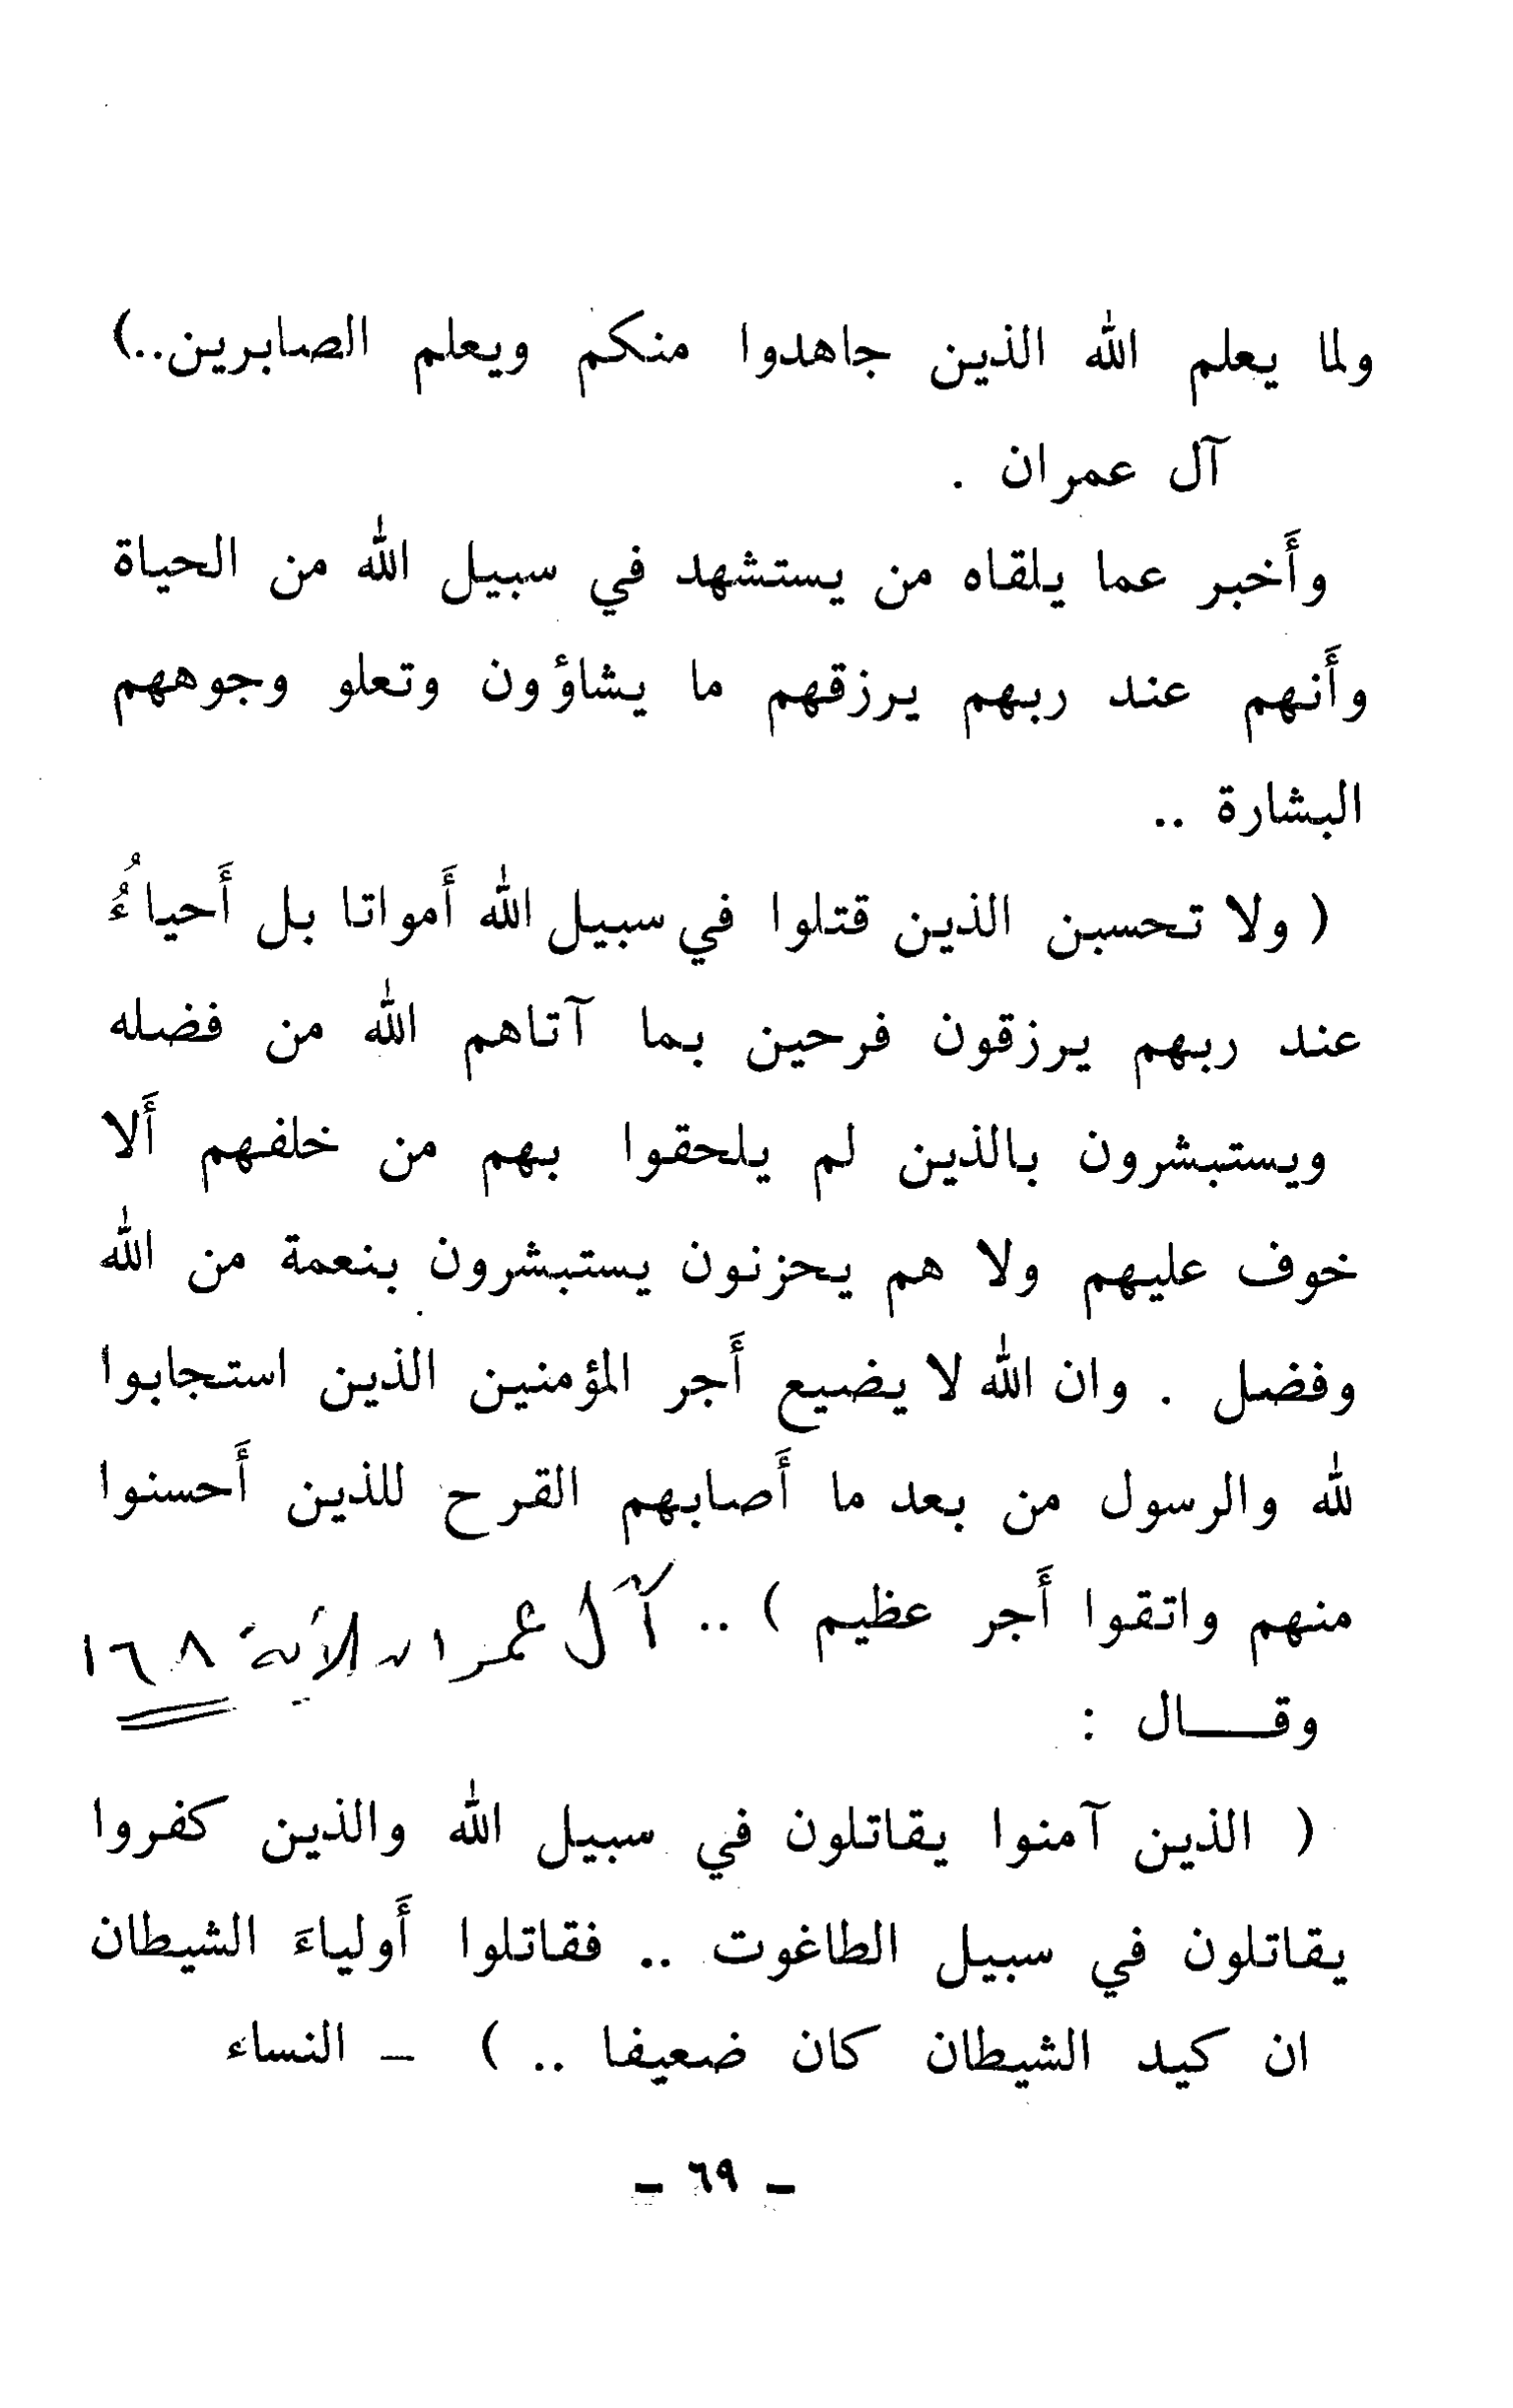 ولما يعلم الله الذين جاهدوا منكم ويعلم الصابرين..)
آل عمران .
وأَخبر عما يلقاه من يستشهد في سبيل الله من الحياة
وأَنهم عند ربهم يرزقهم ما يشاؤون وتعلو وجوههم
البشارة ..
( ولا تحسبن الذين قتلوا في سبيل الله أَمواتا بل أَحياءُُ
عند ربهم يرزقون فرحين بما آتاهم الله من فضله
ويستبشرون بالذين لم يلحقوا بهم من خلفهم أَلا
خوف عليهم ولا هم يحزنون يستبشرون بنعمة من الله
وفضل . وان الله لا يضيع أَجر المؤمنين الذين استجابوا
لله والرسول من بعد ما أَصابهم القرح للذين أَحسنوا
منهم واتقوا أَجر عظيم ) .. آل عمران الآية ١٦٨
وقـــال :
( الذين آمنوا يقاتلون في سبيل الله والذين كفروا
يقاتلون في سبيل الطاغوت .. فقاتلوا أَولياءَ الشيطان
ان كيد الشيطان كان ضعيفا .. ) – النساء
– ٦٩ –